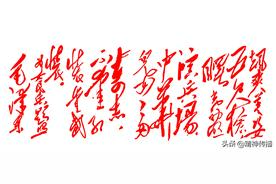 飒爽英姿
五尺枪
曙光初照
演兵场
中华
儿女多
奇志
不爱红
装爱武
装
毛泽东
头条@精神传播